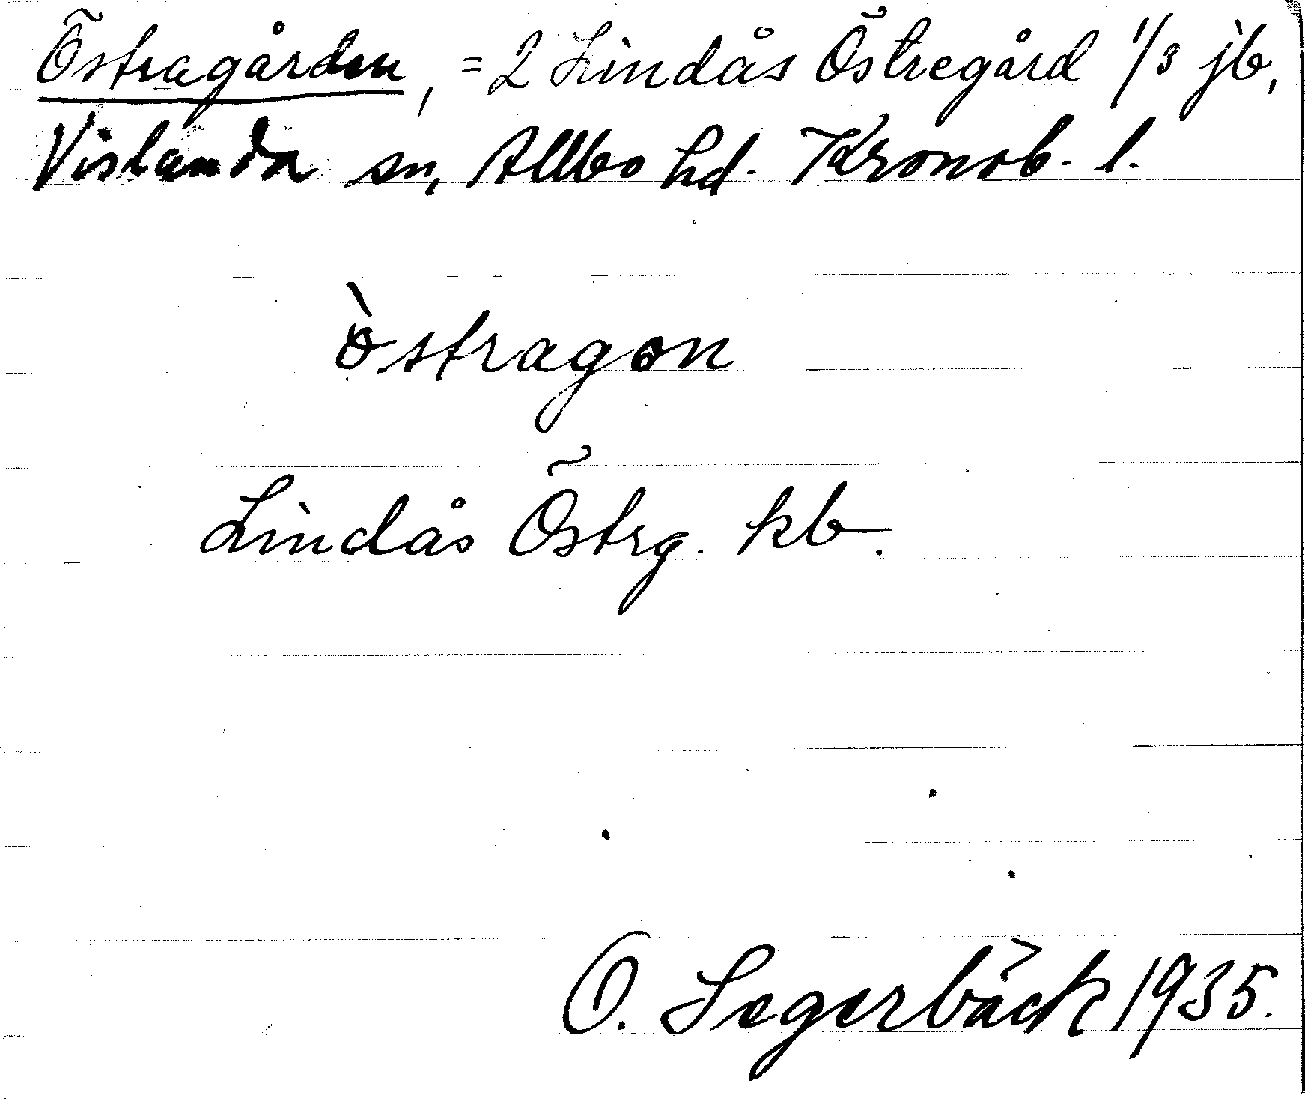 Östragården, = 2 Lindås Östregård 1/3 jb,
Vislanda sn, Allbo hd. Kronob. l.
òstragon
Lindås Östrg. kb.
O. Segerbäck 1935.